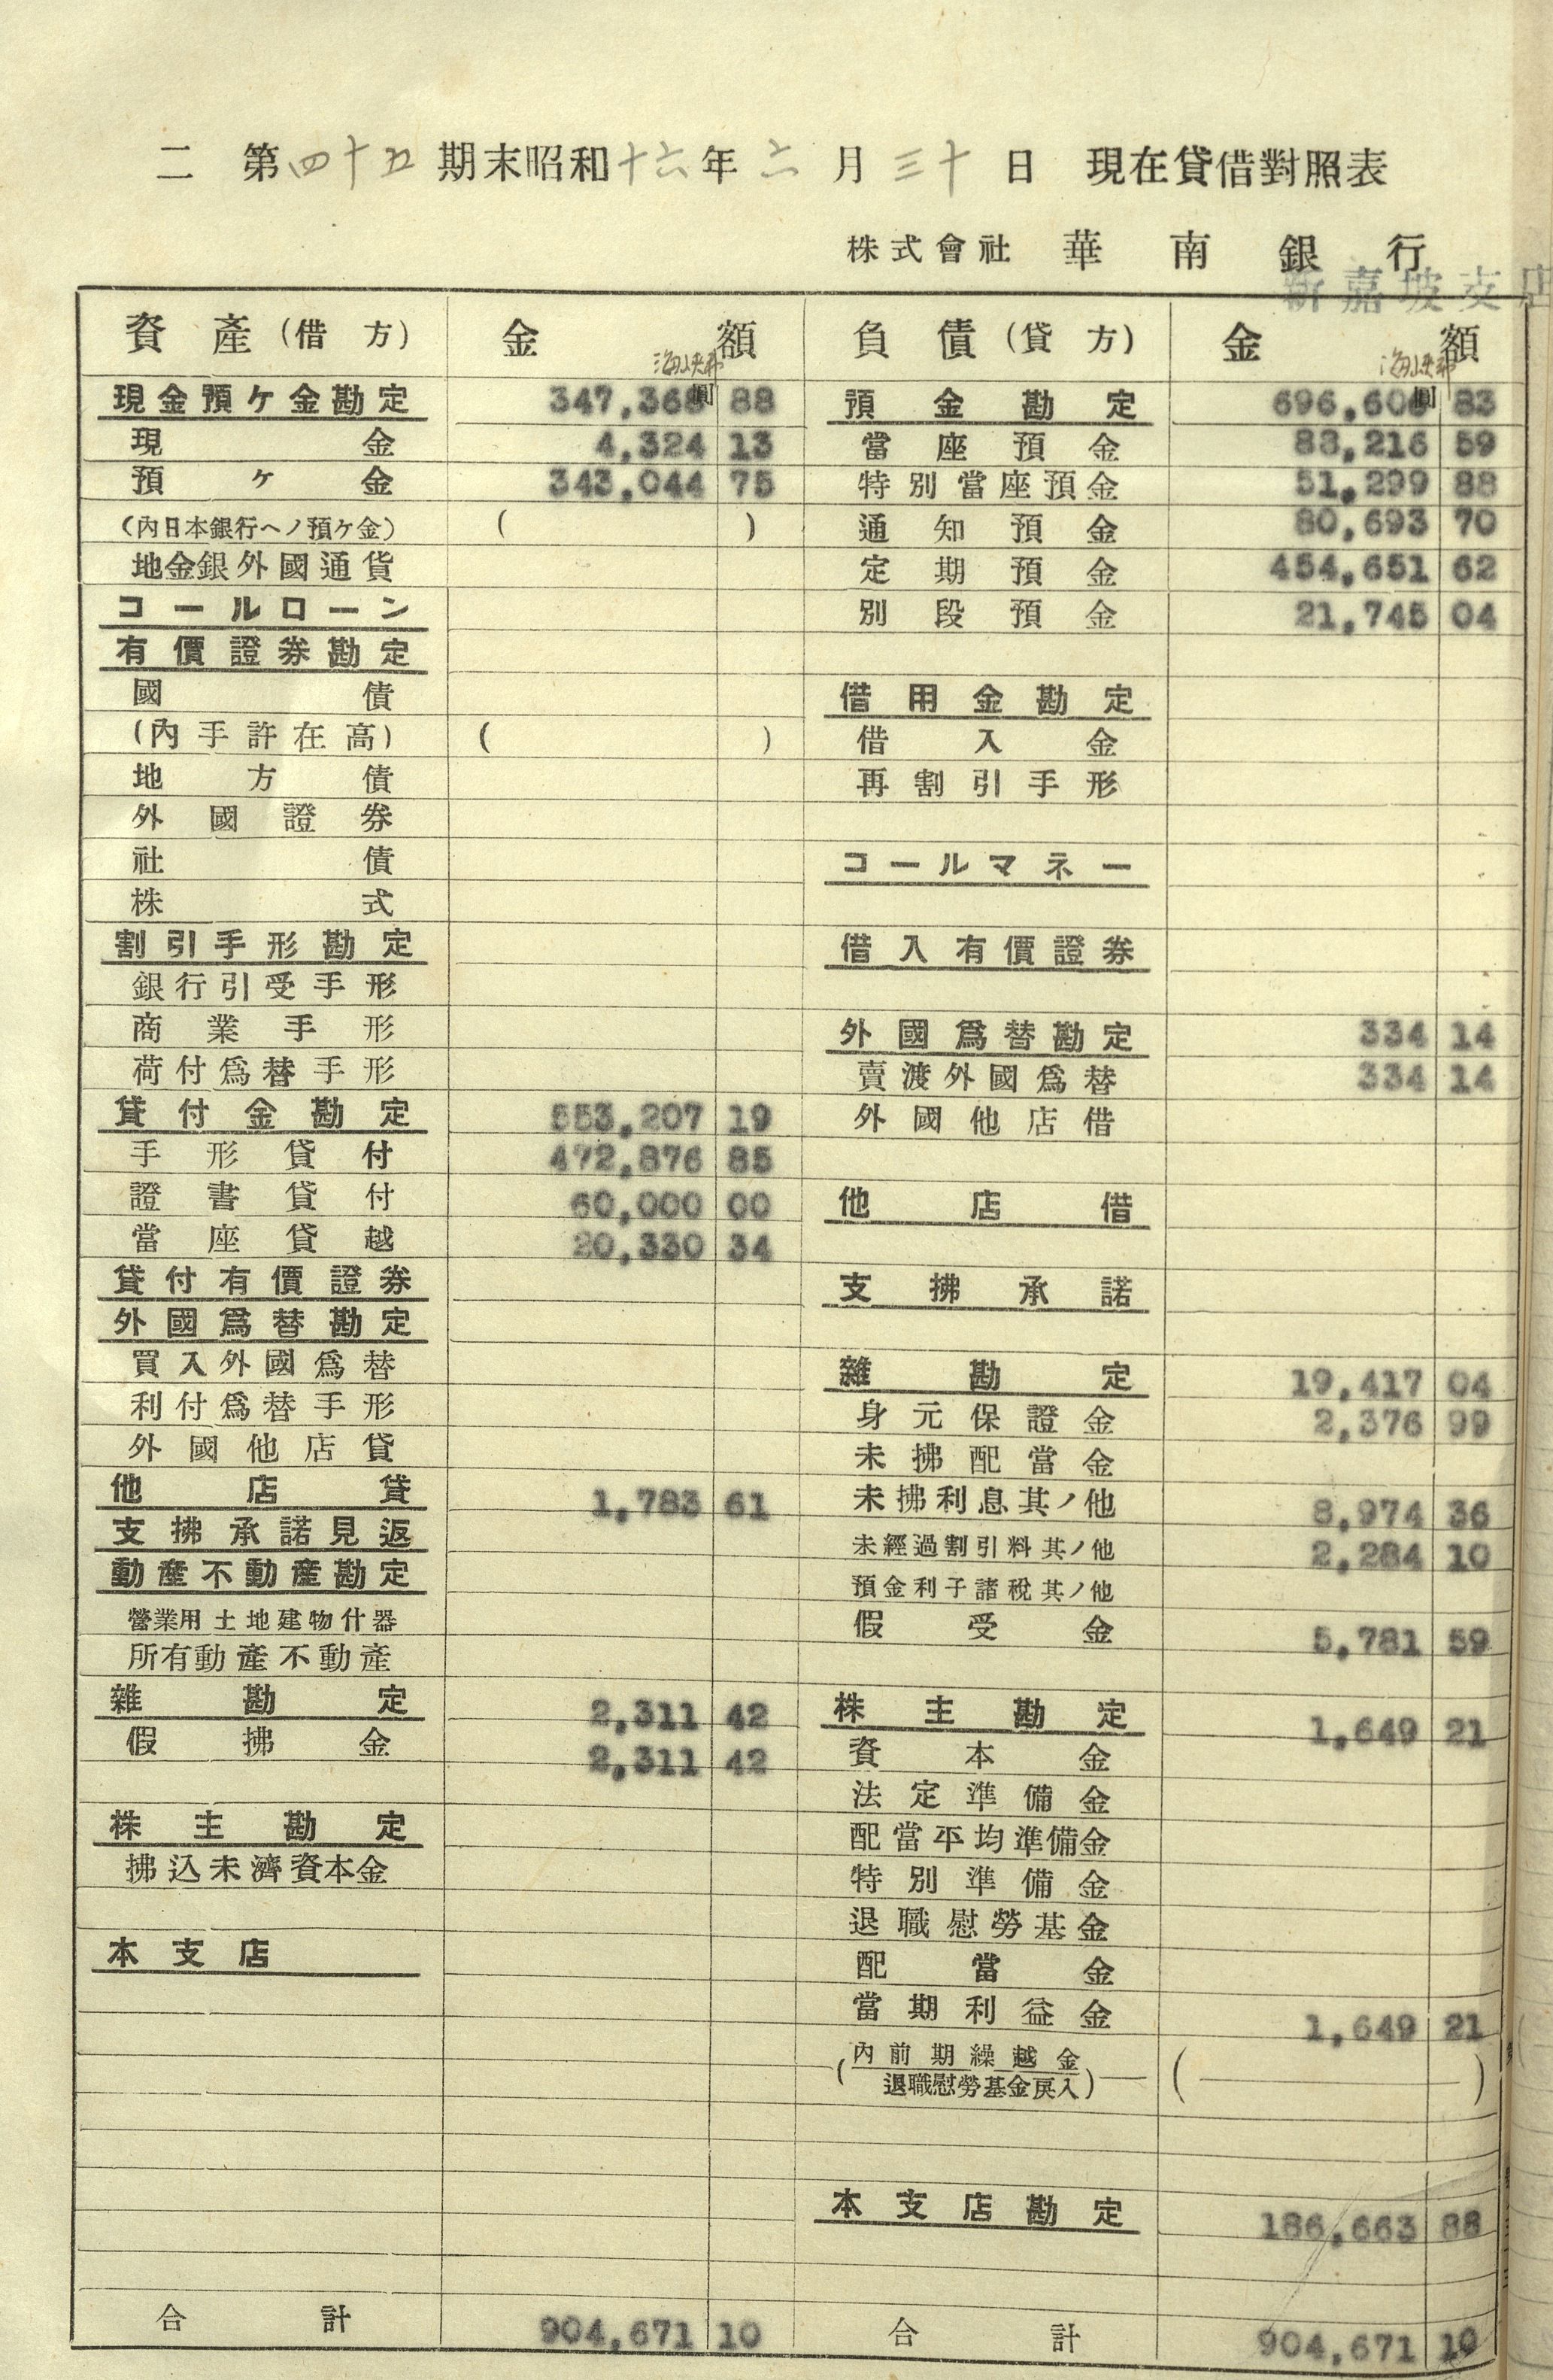 二 第四十五期末昭和十六年六月三十日 現在貸借對照表
株式會社 華南銀行
新嘉坡支店
資產(借方) 金額
海峡弗
圓
現金預ケ金勘定 347,368 88
現金 4,324 13
預ケ金 343,044 75
(內日本銀行ヘノ預ケ金) ( )
地金銀外國通貨
コールローン
有價證券勘定
國債
(內手許在高) ( )
地方債
外國證券
社債
株式
割引手形勘定
銀行引受手形
商業手形
荷付爲替手形
貸付金勘定 553,207 19
手形貸付 472,876 85
證書貸付 60,000 00
當座貸越 20,330 34
貸付有價證券
外國爲替勘定
買入外國爲替
利付爲替手形
外國他店貸
他店貸 1,783 61
支拂承諾見返
動產不動產勘定
營業用土地建物什器
所有動產不動產
雜勘定 2,311 42
假拂金 2,311 42
株主勘定
拂込未濟資本金
本支店
合計 904,671 10
負債(貸方) 金額
海峡弗
圓
預金勘定 696,606 83
當座預金 88,216 59
特別當座預金 51,299 88
通知預金 80,693 70
定期預金 454,651 62
別段預金 21,745 04
借用金勘定
借入金
再割引手形
コールマネー
借入有價證券
外國爲替勘定 334 14
賣渡外國爲替 334 14
外國他店借
他店借
支拂承諾
雜勘定 19,417 04
身元保證金 2,376 99
未拂配當金
未拂利息其ノ他 8,974 36
未經過割引料其ノ他 2,284 10
預金利子諸稅其ノ他
假受金 5,781 59
株主勘定 1,649 21
資本金
法定準備金
配當平均準備金
特別準備金
退職慰勞基金
配當金
當期利益金 1,649 21
(內前期繰越金
退職慰勞基金戾入) ( )
本支店勘定 186,663 88
合計 904,671 10